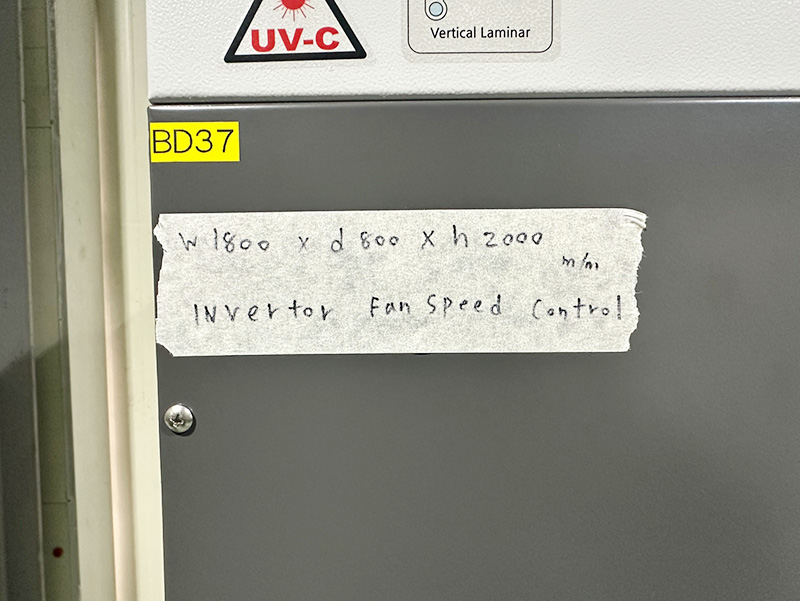 UV-C
Vertical Laminar
BD37
W 1800 x d 800 x h 2000
m/m
INvertor Fan Speed Control